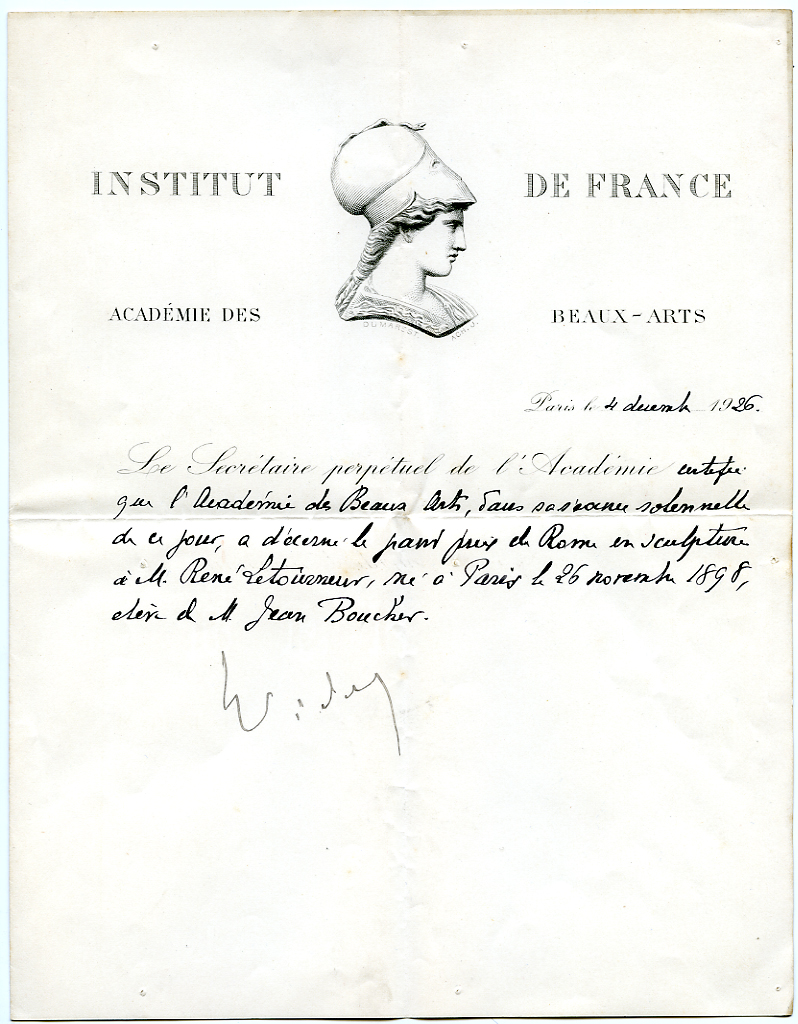 INSTITUT DE FRANCE
ACADÉMIE DES BEAUX-ARTS
DUMAREST
Paris le 4 decembre 1926.
Le Secrétaire perpétuel de l'Académie certifie
que l'Académie des Beaux Arts, dans sa séance solennelle
de ce jour, a décerné le grand prix de Rome en sculpture
à M. René Letourneur, né à Paris le 26 novembre 1898,
élève de M Jean Boucher.